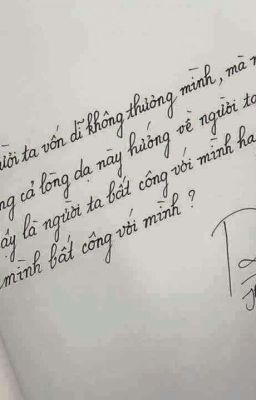 ười ta vốn dĩ không thương mình, mà m
ng cả lòng dạ này hướng về người ta
ấy là người ta bất công với mình ha
mình bất công với mình ?